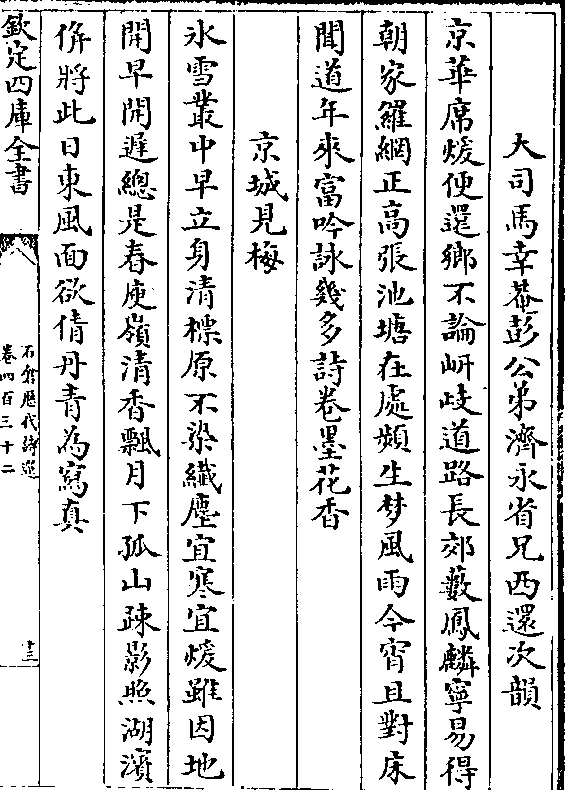 大司馬幸菴彭公弟濟永省兄西還次韻
京華席煖便還鄉不論岍岐道路長郊藪鳳麟寧易得
朝家羅網正高張池塘在處頻生梦風雨今宵且對床
聞道年來富吟詠幾多詩卷墨花香
京城見梅
氷雪叢中早立身清標原不染纎塵宜寒宜煖雖因地
開早開遲總是春庾嶺清香飄月下孤山疎影照湖濱
倂將此日東風面欲倩丹青為寫真
欽定四庫全書
石倉歷代詩選
卷四百三十二
十三